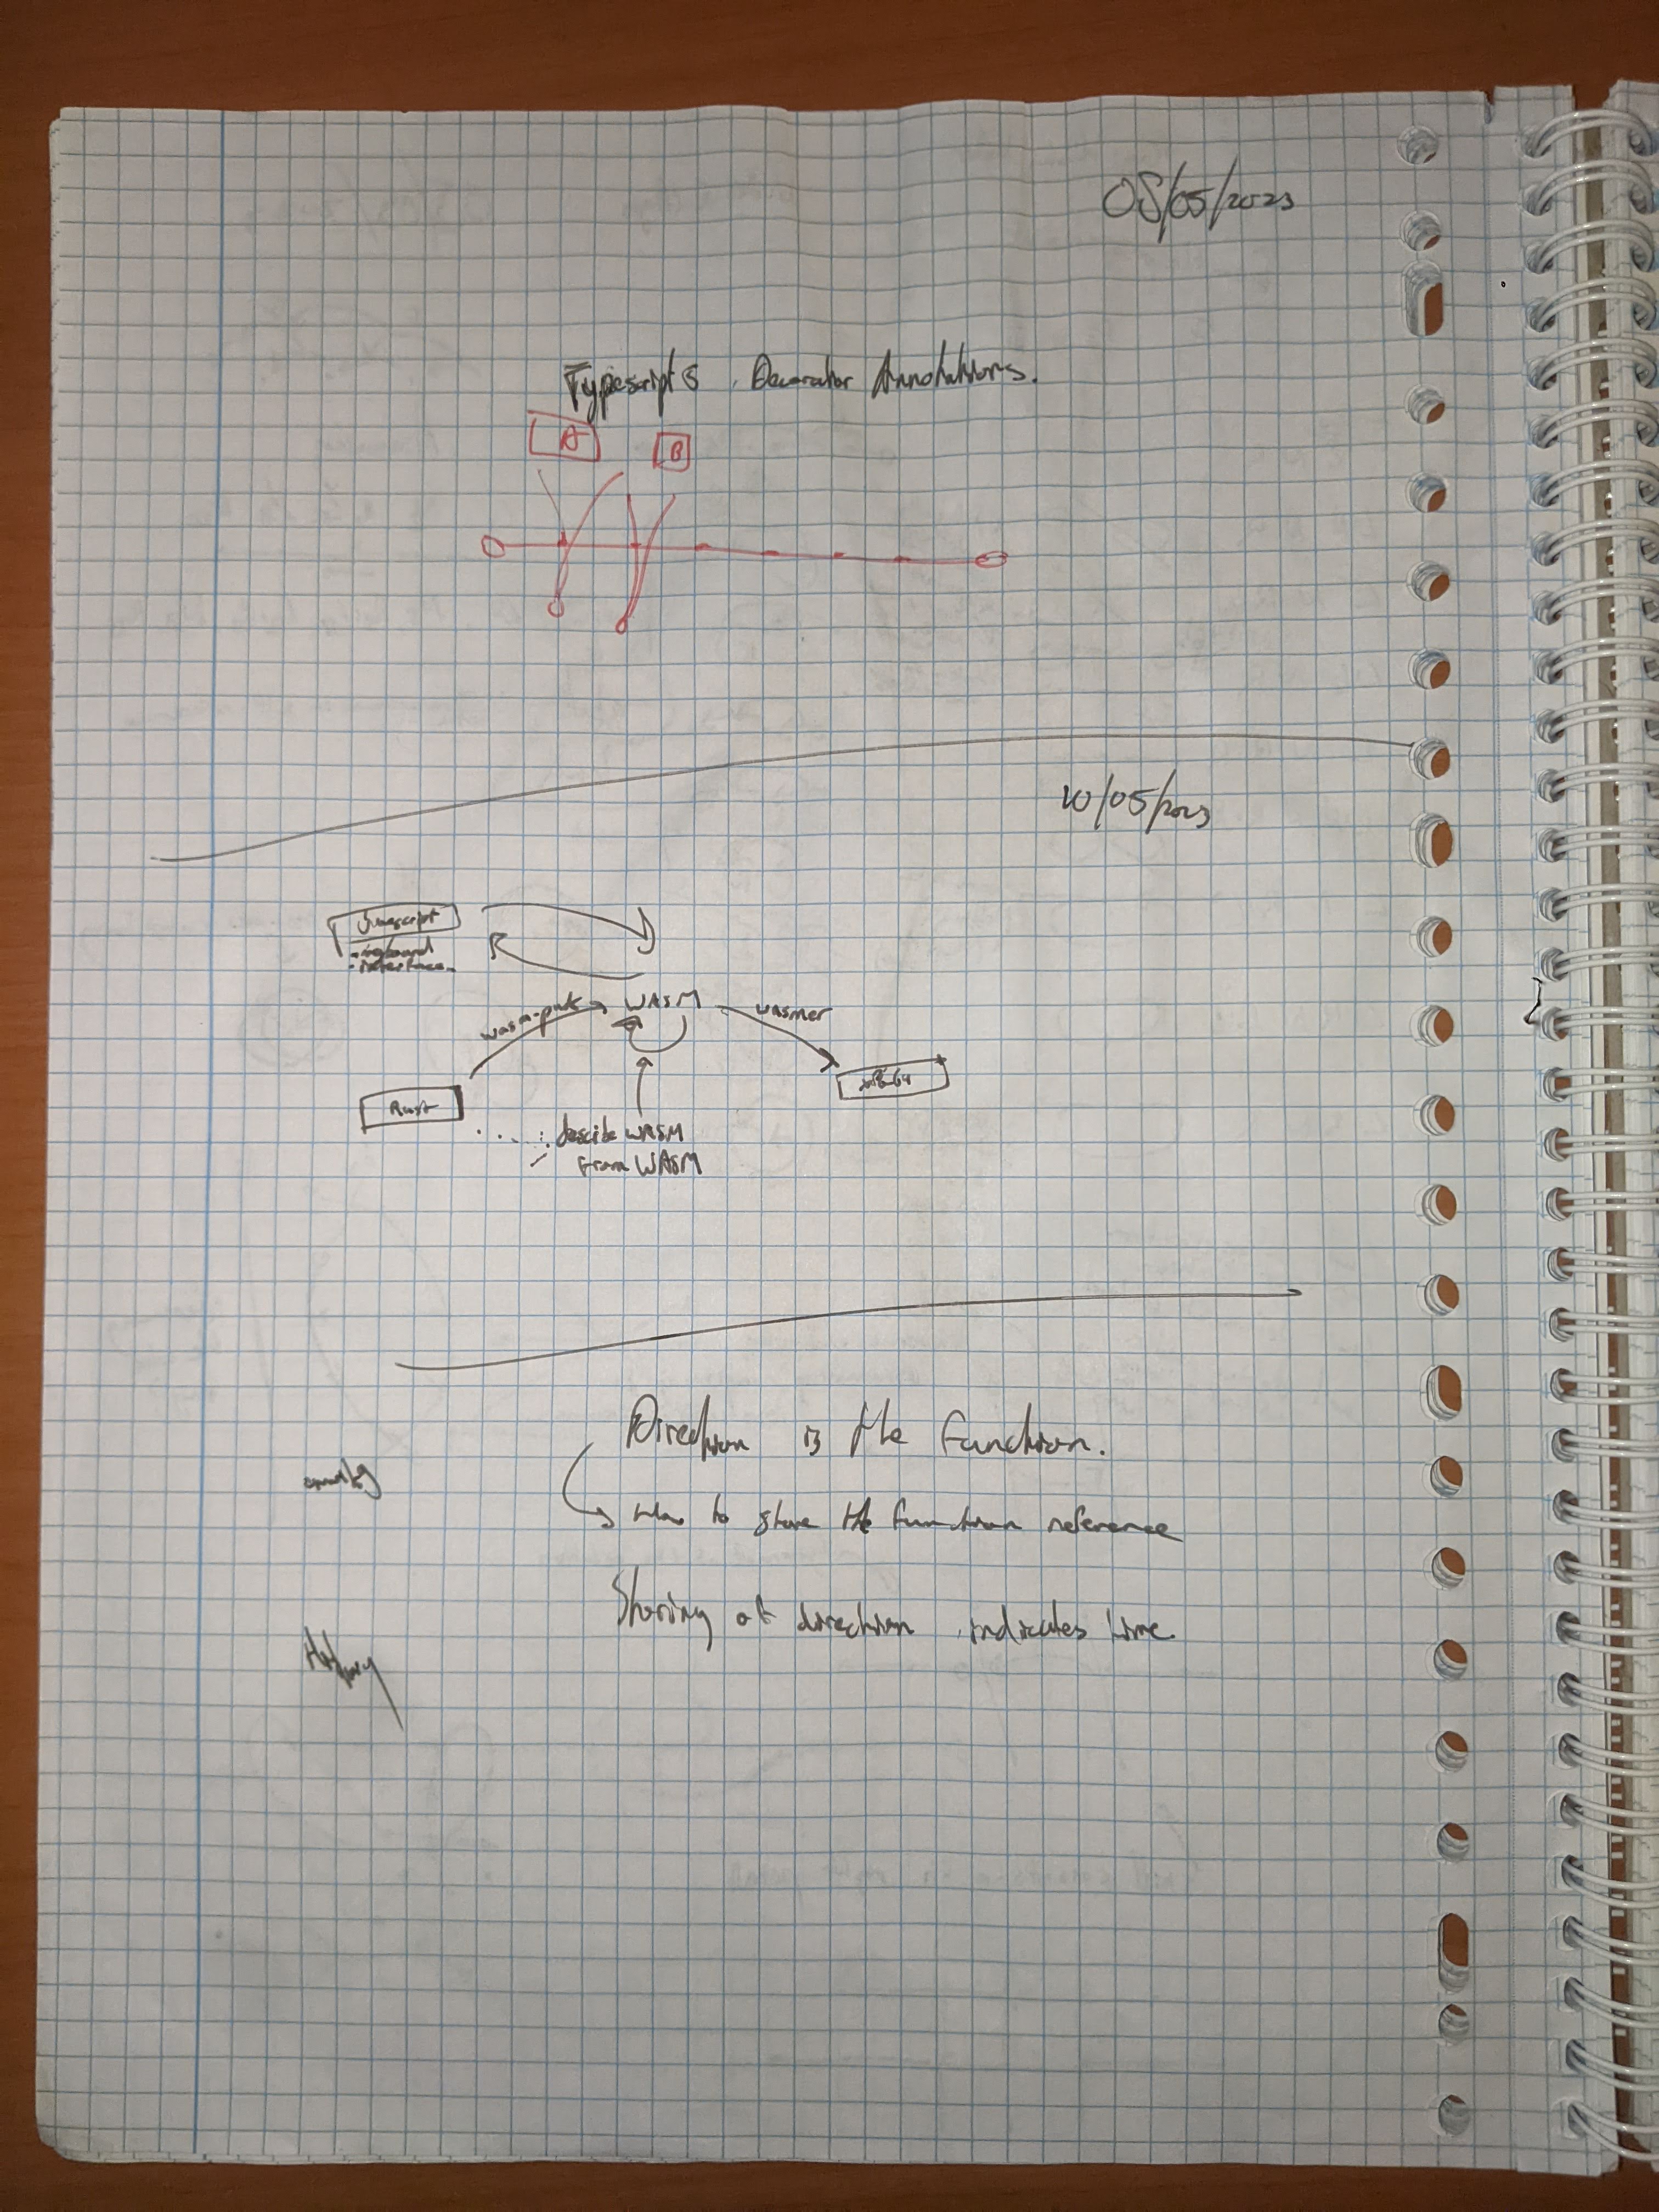 05/05/2023
Typescript 5 Decorator Annotations.
A
B
10/05/2023
Javascript
- keyboard
- interface
wasm-pack
WASM
wasmer
Rust
x86-64
describe WASM
from WASM
Direction is the function.
to store the function reference
Storing of direction indicates time.